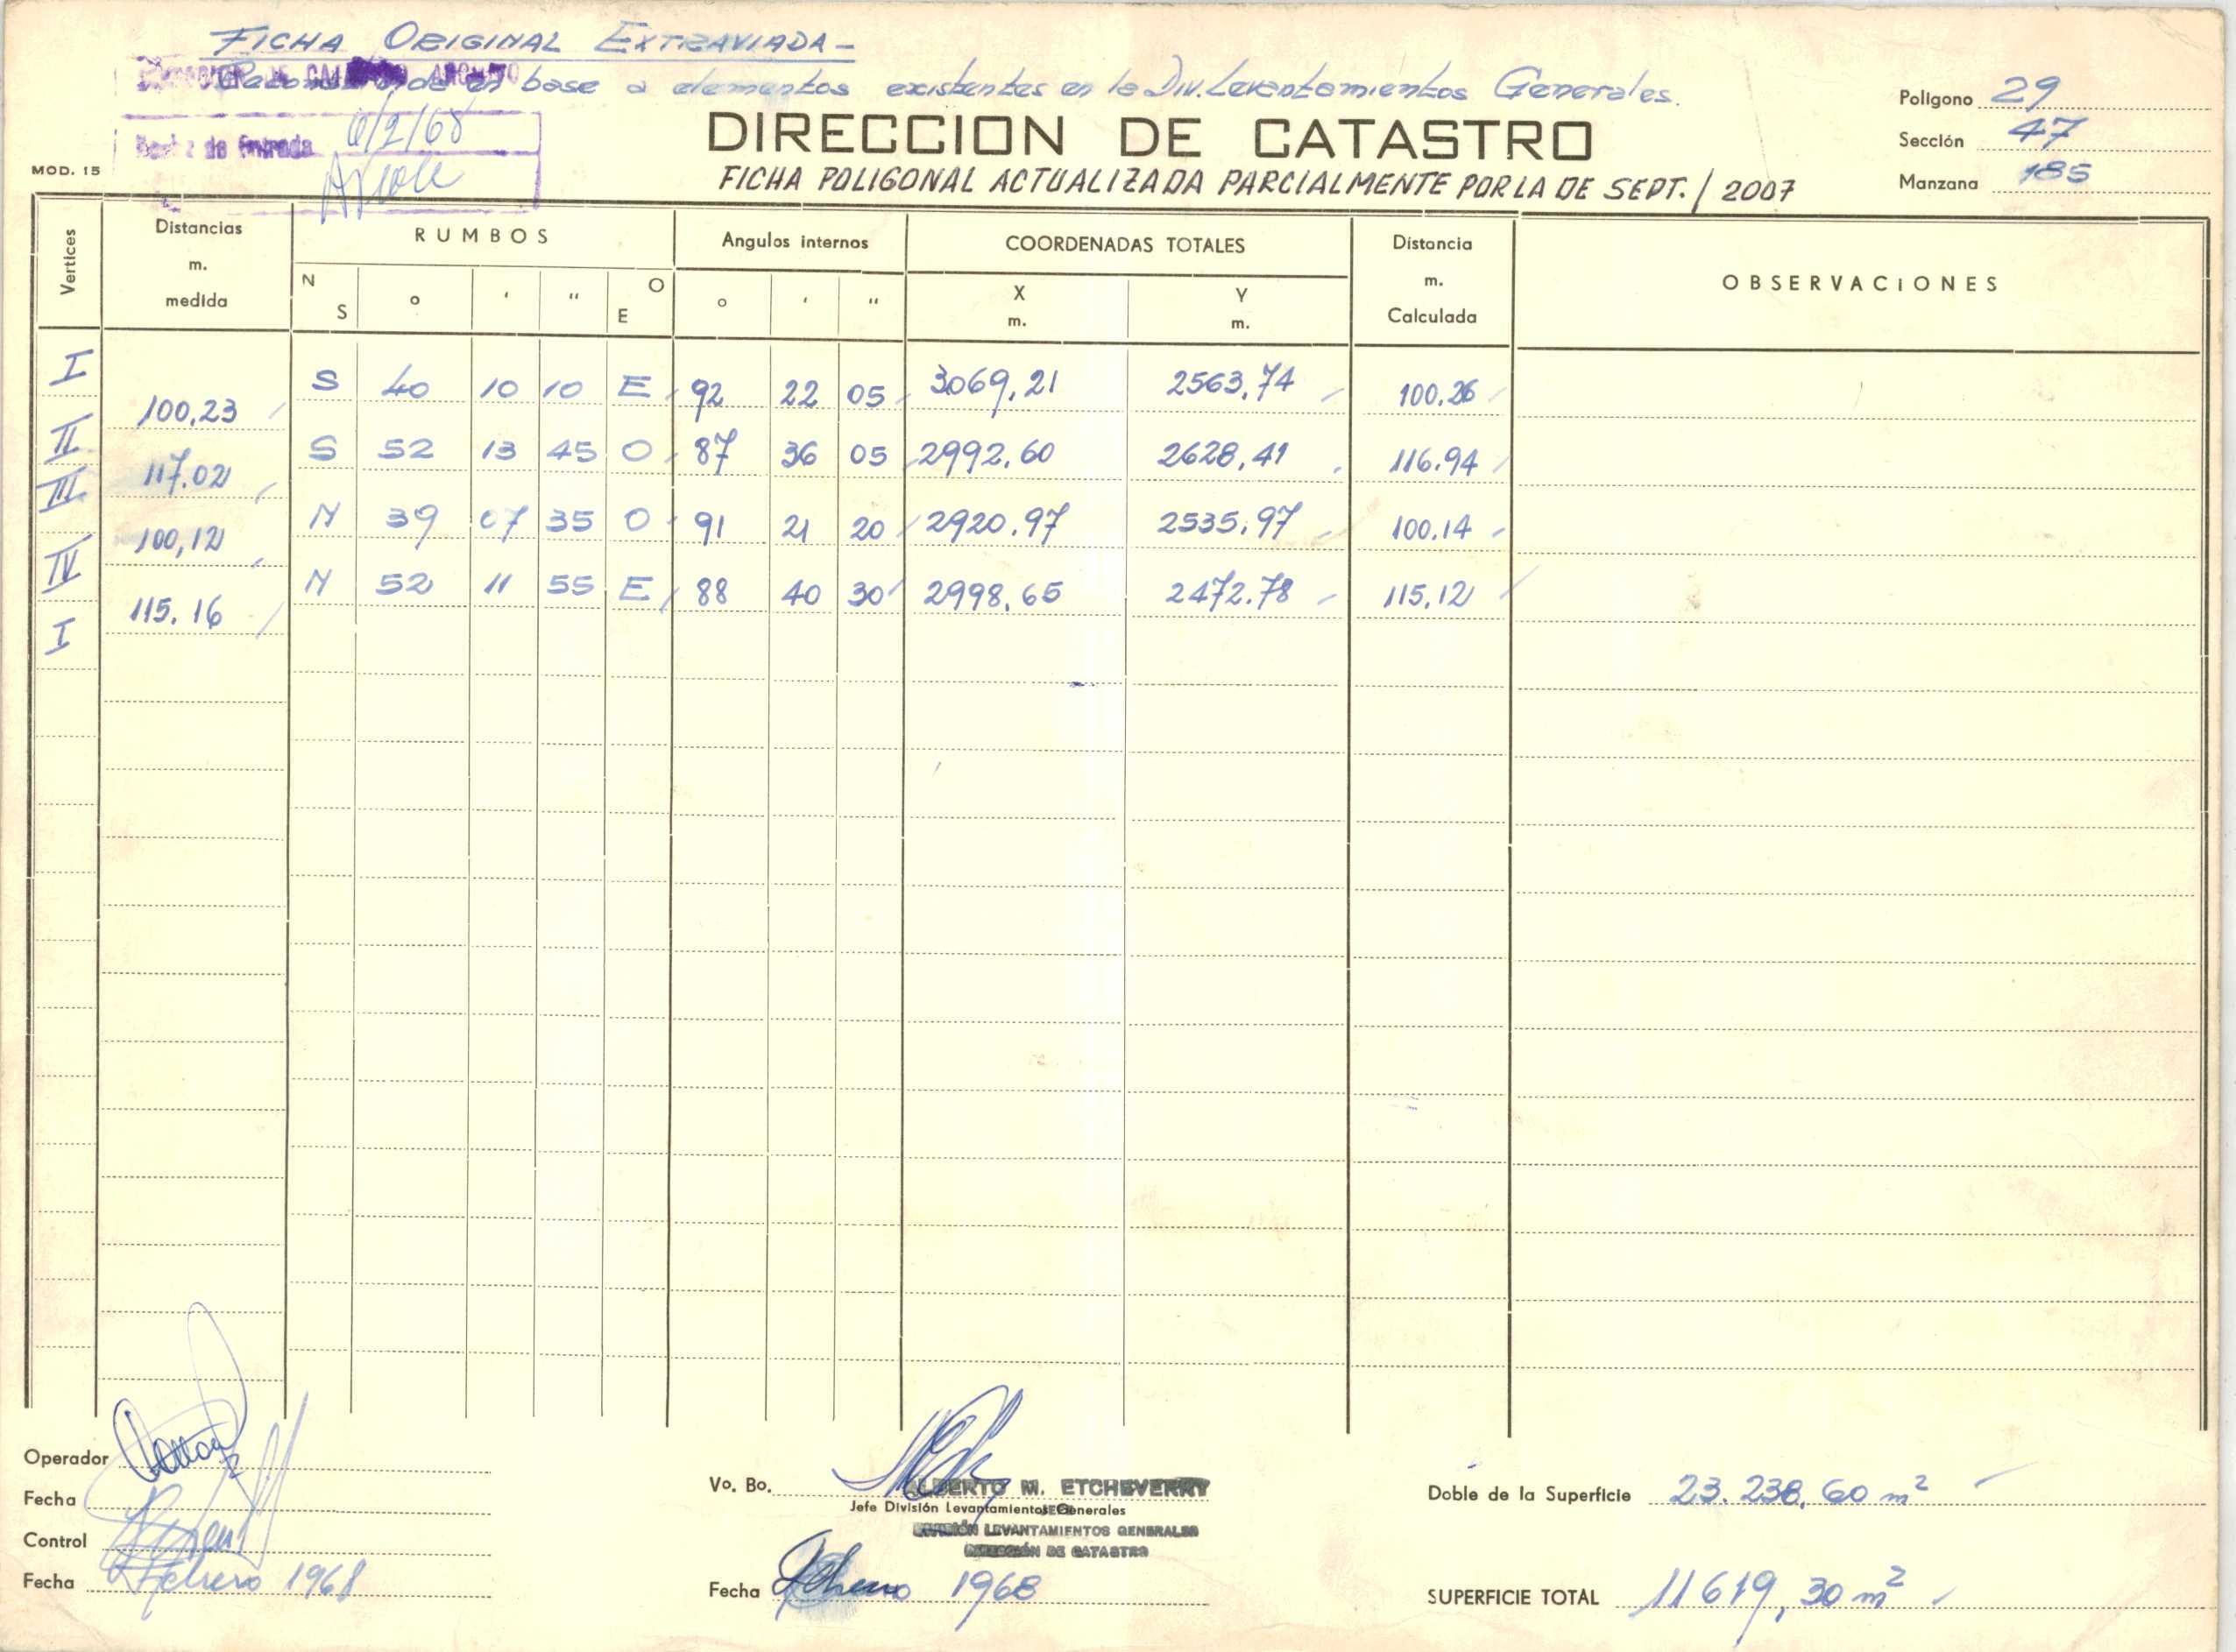 FICHA ORIGINAL EXTRAVIADA -
en base a elementos existentes en la Div. Levantamientos Generales.
ARCHIVO
de Entrada 6/2/68
MOD. 15
DIRECCION DE CATASTRO
FICHA POLIGONAL ACTUALIZADA PARCIALMENTE POR LA DE SEPT. / 2007
Poligono 29
Sección 47
Manzana 185
Vertices Distancias m. medida RUMBOS Angulos internos COORDENADAS TOTALES Distancia m. Calculada OBSERVACIONES
N S o ' " O E o ' " X m. Y m.
I
100,23 S 40 10 10 E 92 22 05 3069,21 2563,74 100,26
II
117.02 S 52 13 45 O 87 36 05 2992,60 2628,41 116.94
III
100,12 N 39 07 35 O 91 21 20 2920.97 2535,97 100.14
IV
115.16 N 52 11 55 E 88 40 30 2998,65 2472.78 115,12
I
Operador
Fecha
Control
Fecha Febrero 1968
Vo. Bo. ALBERTO M. ETCHEVERRY
Jefe División Levantamientos Generales
DIVISIÓN LEVANTAMIENTOS GENERALES
DIRECCIÓN DE CATASTRO
Fecha Febrero 1968
Doble de la Superficie 23.238,60 m²
SUPERFICIE TOTAL 11619,30 m²